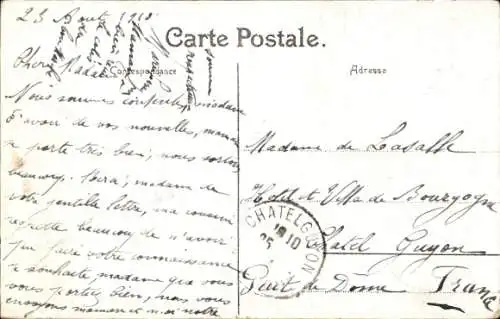 23 Août 1910
Carte Postale.
Correspondance
Adresse
Chère Madame
Nous sommes contentes, madame
d'avoir de vos nouvelles, maman
se porte très bien, nous sortons
beaucoup. Merci, madame de
votre gentille lettre, ma
regrette beaucoup de n'avoir
pu faire votre connaissance
Je souhaite, madame que vous
vous portez bien, nous vous
envoyons maman et moi notre
Madame de Lasalle
Hotel et Villa de Bourgogne
Chatel Guyon
Puit de Dôme France
CHATELGUYON